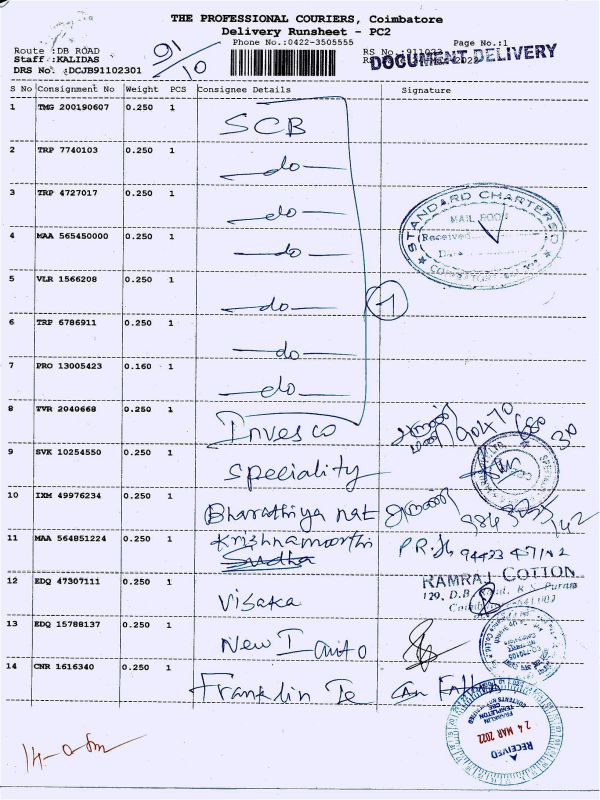 THE PROFESSIONAL COURIERS, Coimbatore
Delivery Runsheet - PC2
Phone No.:0422-3505555
Page No.:1
Route :DB ROAD
Staff :KALIDAS
DRS No. :DCJB91102301
91/10
RS No.:911023
DOCUMENT DELIVERY
S No Consignment No Weight PCS Consignee Details Signature
1 TMG 200190607 0.250 1 SCB
2 TRP 7740103 0.250 1 -do-
3 TRP 4727017 0.250 1 -do-
4 MAA 565450000 0.250 1 -do-
5 VLR 1566208 0.250 1 -do-
6 TRP 6786911 0.250 1 -do-
7 PRO 13005423 0.160 1 -do-
1
STANDARD CHARTERED
MAIL ROOM
Received
8 TVR 2040668 0.250 1 Invesco
9 SVK 10254550 0.250 1 Speciality
10 IXM 49976234 0.250 1 Bharathiya nat
11 MAA 564851224 0.250 1 Krishnamoorthi
Sudha
12 EDQ 47307111 0.250 1 Visaka
RAMRAJ COTTON
129, D.B. Road, R S Puram
13 EDQ 15788137 0.250 1 New I auto
14 CNR 1616340 0.250 1 Franklin Te
RECEIVED
24 MAR 2022
FRANKLIN
TEMPLETON